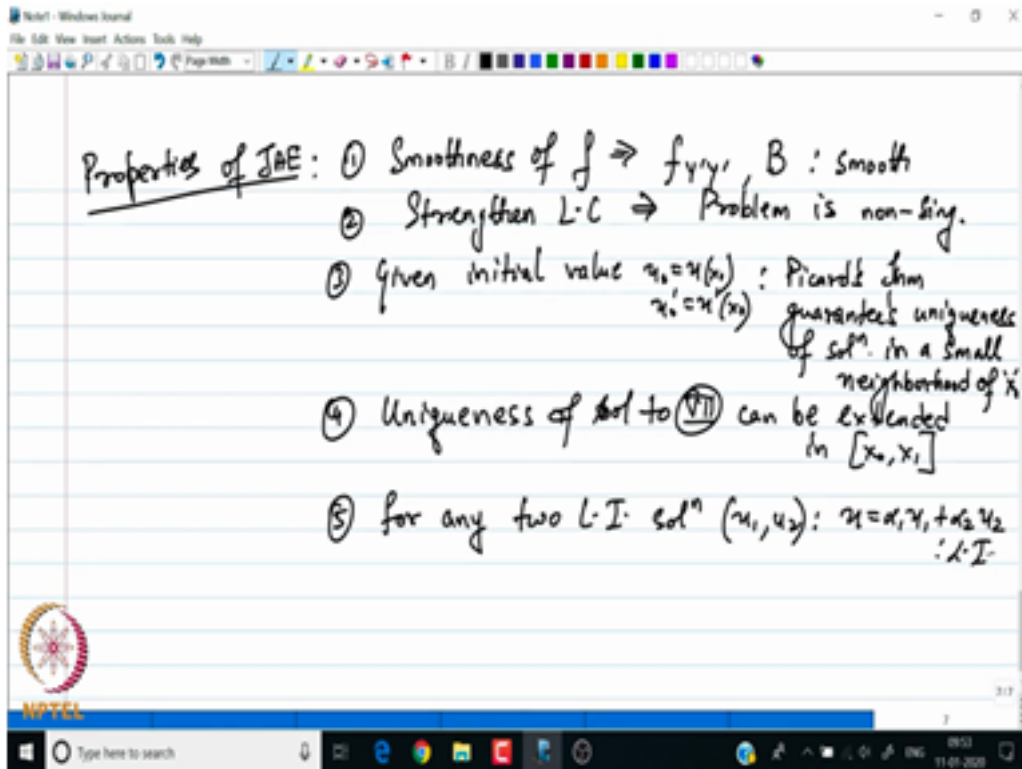 Note1 - Windows Journal
File Edit View Insert Actions Tools Help
Page Width
B I
Properties of JAE : ① Smoothness of f ⇒ fy'y' , B : smooth
② Strengthen L.C ⇒ Problem is non-sing.
③ Given initial value u₀ = u(x₀) : Picard's thm
u₀' = u'(x₀) guarantees uniqueness
of solⁿ. in a small
neighborhood of
④ Uniqueness of sol to VII can be extended
in [x₀, x₁]
⑤ for any two L.I. solⁿ (u₁, u₂) : u = α₁u₁ + α₂u₂
: L.I.
NPTEL
7
Type here to search
ENG
09:53
11-01-2020